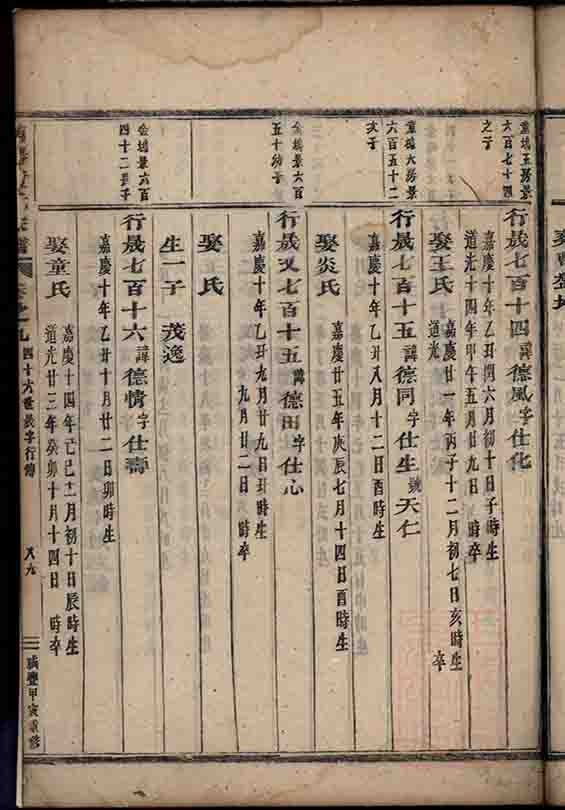 童塢五房景
六百七十四
之子
行晟七百十四諱德風字仕化
嘉慶十年乙丑閏六月初十日子時生
道光十四年甲午五月廿九日 時卒
娶王氏
嘉慶廿一年丙子十二月初七日亥時生
道光 卒
童塢大房景
六百五十二
次子
行晟七百十五諱德同字仕生號天仁
嘉慶十年乙丑八月十二日酉時生
娶炎氏
嘉慶廿五年庚辰七月十四日酉時生
金塢景六百
五十幼子
行晟又七百十五諱德田字仕心
嘉慶十年乙丑九月廿九日丑時生
二 年 九月廿二日 時卒
娶 氏
生一子 茂逸
金塢景六百
四十二長子
行晟七百十六諱德情字仕壽
嘉慶十年乙丑十月廿二日卯時生
娶童氏
嘉慶十四年己巳十二月初十日辰時生
道光廿三年癸卯十月十四日 時卒
卷之九
四十六世晟字行傳
八九
咸豐甲寅重修